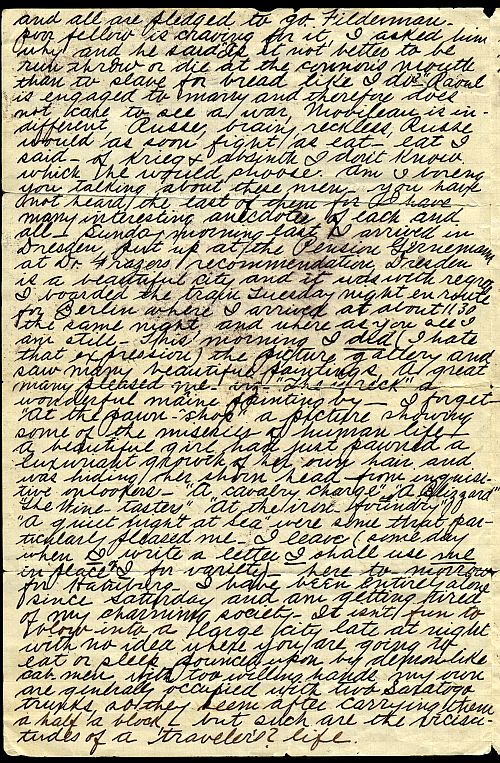 and all are pledged to go. Filderman-
poor fellow is craving for it, I asked him
why and he said "is it not better to be
run through or die at the cannon's mouth
than to slave for bread like I do." Raoul
is engaged to marry and therefore does
not care to see a war, Mobileau is in-
different. Russe, brainy, reckless, Russe
would as soon fight as eat - eat I
said - of Krieg & absinth I don't know
which he would choose. Am I boring
you talking about these men - you have
not heard the last of them for I have
many interesting anecdotes of each and
all - Sunday morning last I arrived in
Dresden, put up at the Pension
at Dr. Frazers recommendation, Dresden
is a beautiful city and it was with regret
I boarded the train Tuesday night en route
for Berlin where I arrived at about 11:30
the same night and where as you see I
am still - This morning I did (I hate
that expression) the picture gallery and
saw many beautiful paintings. A great
many pleased me - "The Wreck" a
wonderful marine painting by - I forget -
"At the pawn-shop" a picture showing
some of the miseries of human life -
A beautiful girl had just pawned a
luxuriant growth of her own hair and
was hiding her shorn head from inquisi-
tive onlookers - "A cavalry charge," "A Blizzard"
"The Wine-tasters" "At the iron foundry"
"A quiet night at sea" were some that par-
ticularly pleased me. I leave (some day
when I write a letter I shall use me
in place of I for variety) here to morrow
for Hamburg. I have been entirely alone
since Saturday and am getting tired
of my charming society - It isn't fun to
blow into a large city late at night
with no idea where you are going to
eat or sleep, pounced upon by demon like
cab men with too willing hands, my own
are generally occupied with two Saratoga
trunks, so they seem after carrying them
a half a block - but such are the vicissi-
tudes of a traveler's? life.